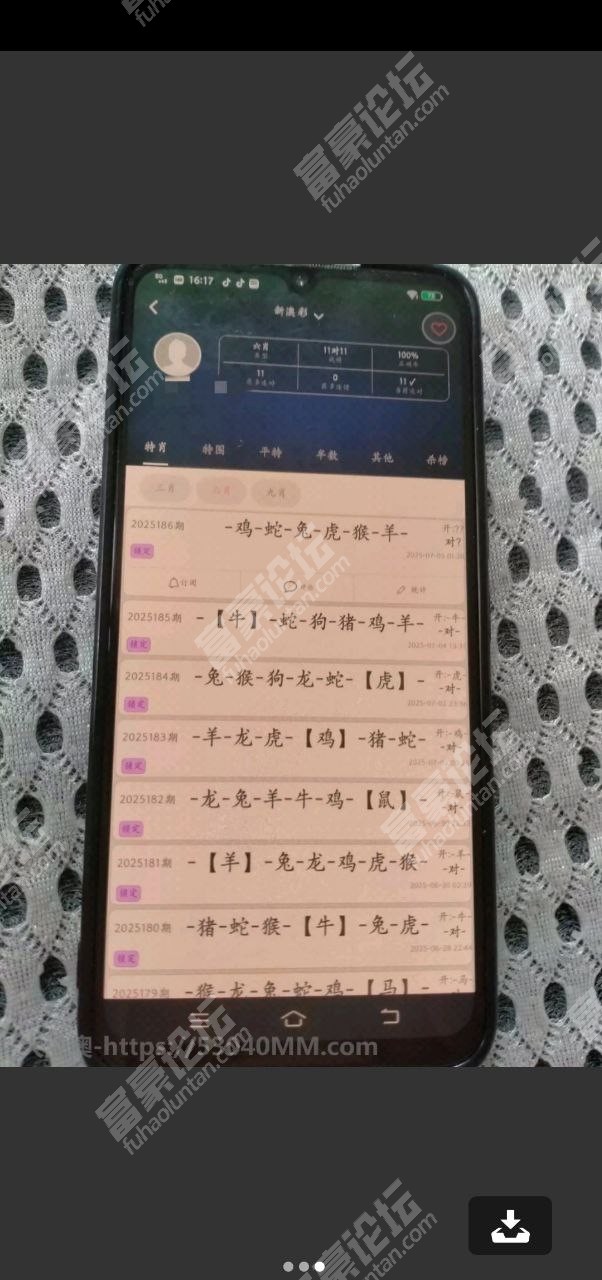 富豪论坛
fuhaoluntan.com
16:17
新澳彩
六肖 11对11 100%
11 0 11✓
特肖 特围 平特 半数 其他 杀榜
三肖 六肖 九肖
2025186期 -鸡-蛇-兔-虎-猴-羊- 开:??
对?
锁定 2025-07-05 01:20
订阅 统计
2025185期 -【牛】-蛇-狗-猪-鸡-羊- 开:-牛-
-对-
锁定
2025184期 -兔-猴-狗-龙-蛇-【虎】- 开:-虎-
-对-
锁定
2025183期 -羊-龙-虎-【鸡】-猪-蛇- 开:-鸡-
-对-
锁定
2025182期 -龙-兔-羊-牛-鸡-【鼠】- 开:-鼠-
-对-
锁定
2025181期 -【羊】-兔-龙-鸡-虎-猴- 开:-羊-
-对-
锁定
2025180期 -猪-蛇-猴-【牛】-兔-虎- 开:-牛-
-对-
锁定 2025-06-28 22:44
2025179期 -猴-龙-兔-蛇-鸡-【马】- 开:-马-
澳-https://53040MM.com
富豪论坛
fuhaoluntan.com